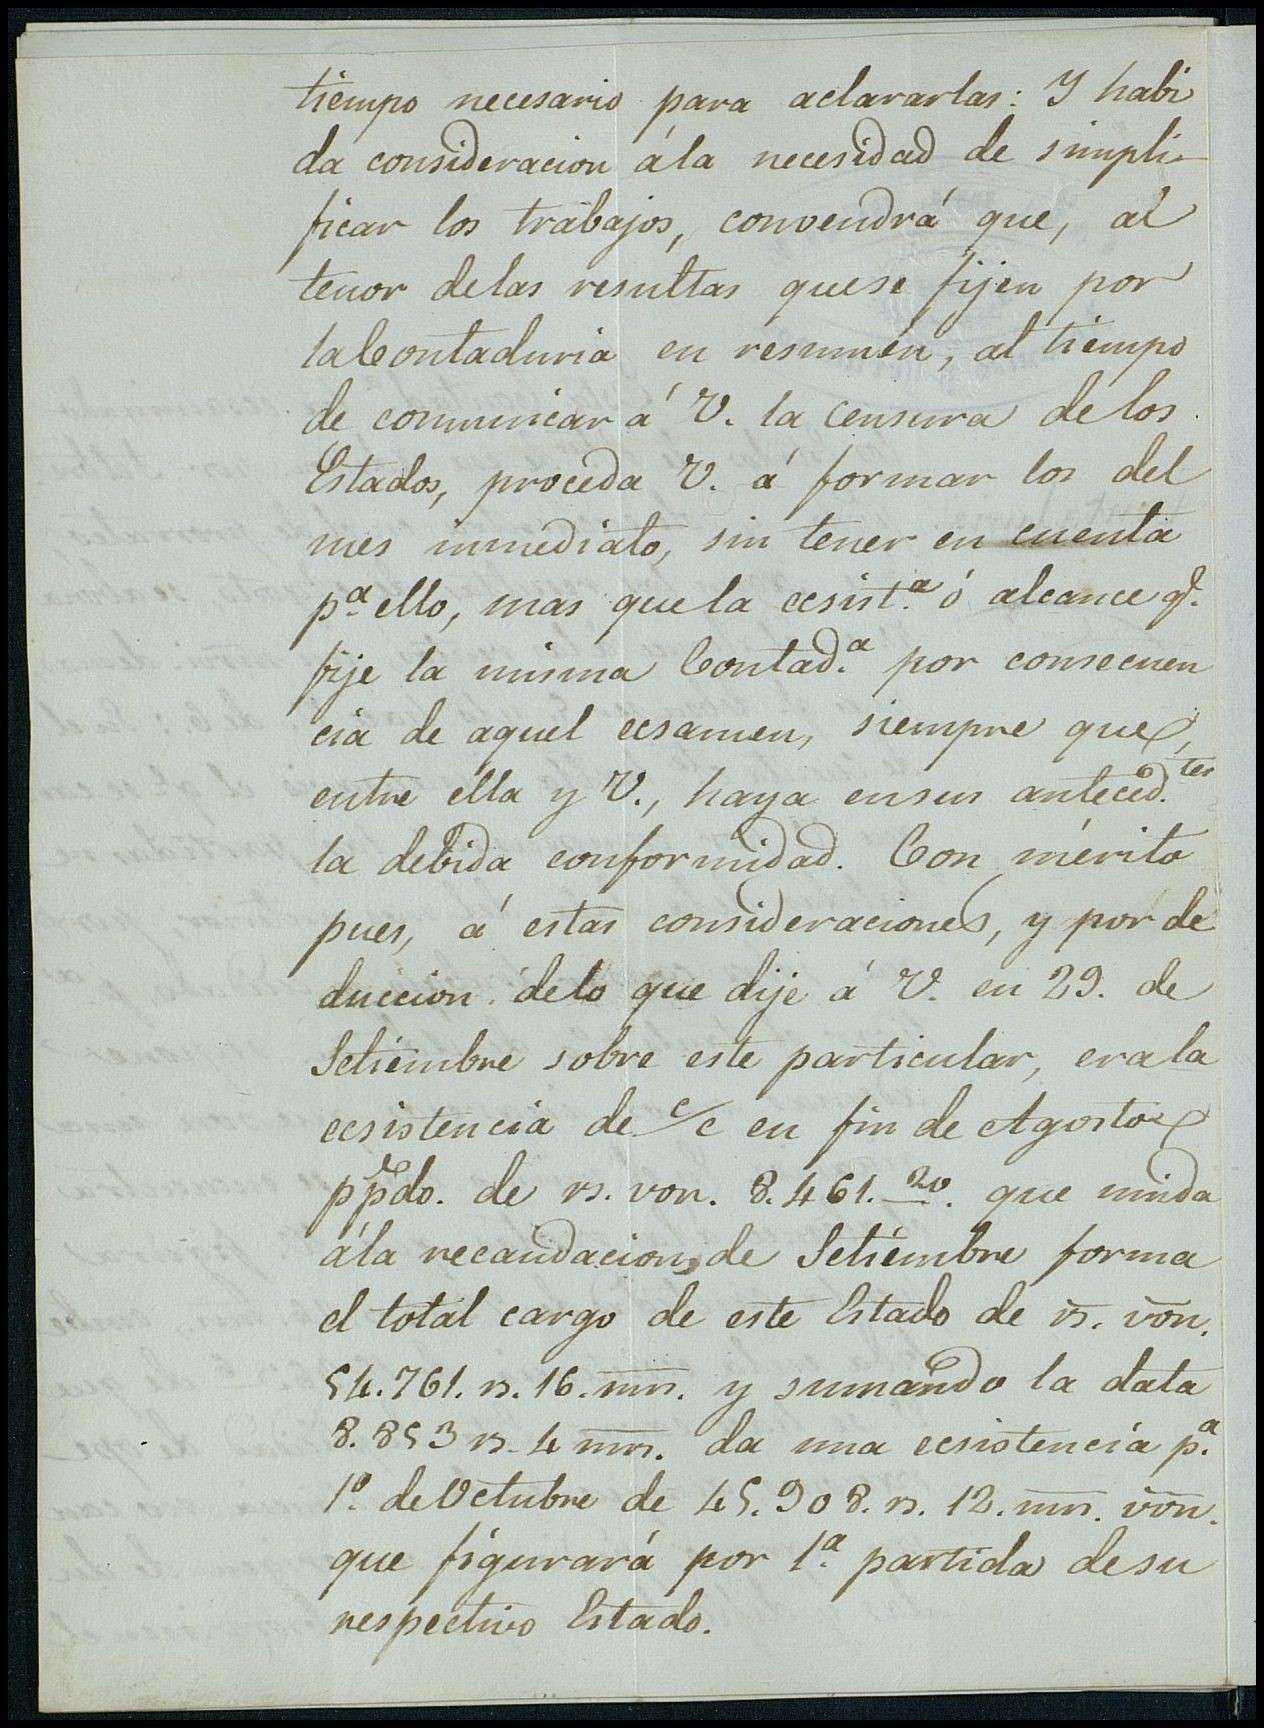 tiempo necesario para aclararlas: Y habi
da consideracion á la necesidad de simpli-
ficar los trabajos, convendrá que, al
tenor de las resultas que se fijen por
la Contaduria en resumen, al tiempo
de comunicar á V. la censura de los
Estados, proceda V. á formar los del
mes inmediato, sin tener en cuenta
p.ª ello, mas que la ecsist.ª ó alcance q.
fije la misma Contad.ª por consecuen
cia de aquel ecsamen, siempre que,
entre ella y V., haya en sus anteced.tes
la debida conformidad. Con mérito
pues, á estas consideraciones, y por de
duccion de lo que dije á V. en 29. de
Setiembre sobre este particular, era la
ecsistencia de c/c en fin de Agosto
ppdo. de rs. von. 8.461.20. que unida
á la recaudacion de Setiembre forma
el total cargo de este Estado de rs. von.
54.761. rs. 16. mrs. y sumando la data
8.853 rs. 4 mrs. da una ecsistencia p.ª
1º. de Octubre de 45.908. rs. 12. mrs. von.
que figurará por 1ª. partida de su
respectivo Estado.